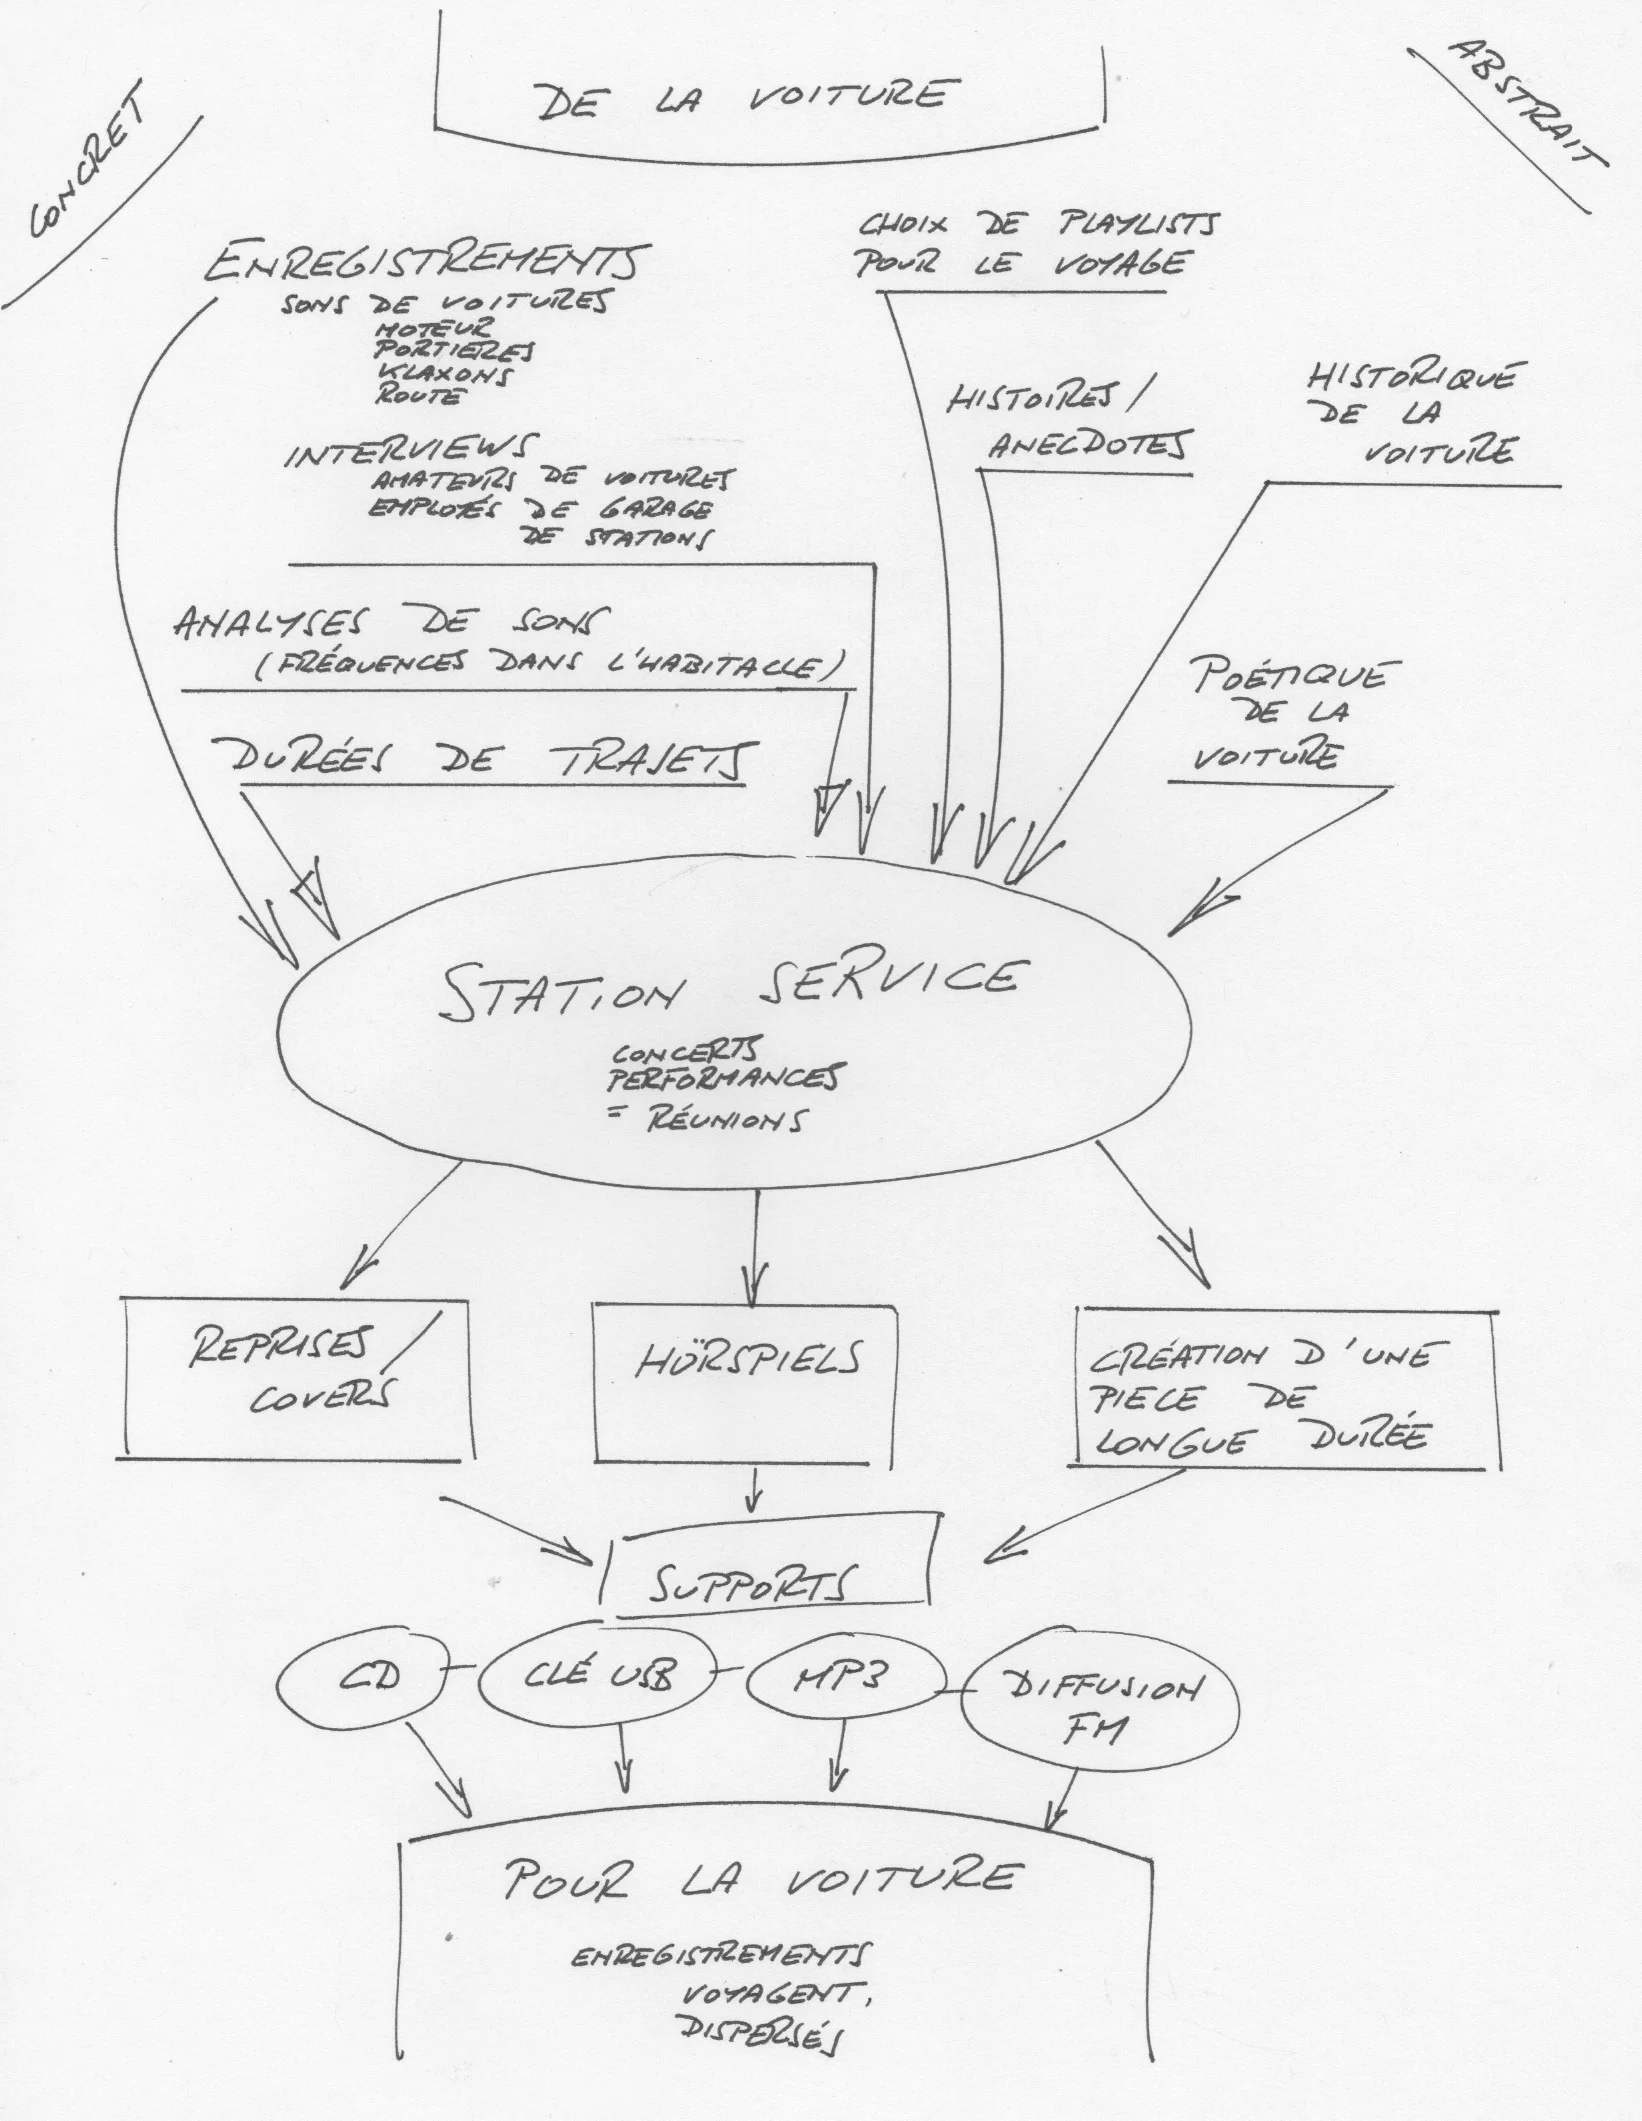 DE LA VOITURE
CONCRET
ABSTRAIT
ENREGISTREMENTS
SONS DE VOITURES
MOTEUR
PORTIERES
KLAXONS
ROUTE
INTERVIEWS
AMATEURS DE VOITURES
EMPLOYÉS DE GARAGE
DE STATIONS
ANALYSES DE SONS
(FRÉQUENCES DANS L'HABITACLE)
DURÉES DE TRAJETS
CHOIX DE PLAYLISTS
POUR LE VOYAGE
HISTOIRES /
ANECDOTES
HISTORIQUE
DE LA
VOITURE
POÉTIQUE
DE LA
VOITURE
STATION SERVICE
CONCERTS
PERFORMANCES
= RÉUNIONS
REPRISES /
COVERS
HÖRSPIELS
CRÉATION D'UNE
PIECE DE
LONGUE DURÉE
SUPPORTS
CD
CLÉ USB
MP3
DIFFUSION
FM
POUR LA VOITURE
ENREGISTREMENTS
VOYAGENT,
DISPERSÉS